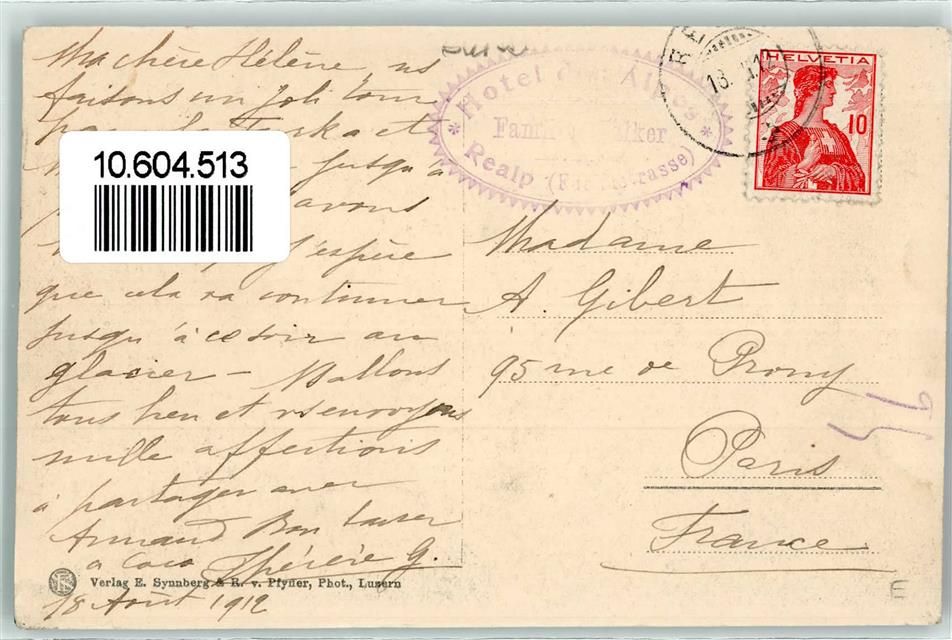 Ma chère Hélène ns
faisons un joli tour
par la Furka et
jusqu'à
avons
j'espère
que cela va continuer
jusqu'à ce soir au
glacier – N allons
tous bien et vs envoyons
mille affections
à partager avec
Armand Bon baiser
à Coco Thérèse G.
18 Août 1912
10.604.513
Verlag E. Synnberg & R. v. Pfyffer, Phot., Luzern
* Hotel des Alpes *
Walker
Realp (Furkastrasse)
HELVETIA
10
Madame
A. Gibert
95 rue de Prony
Paris
France
E